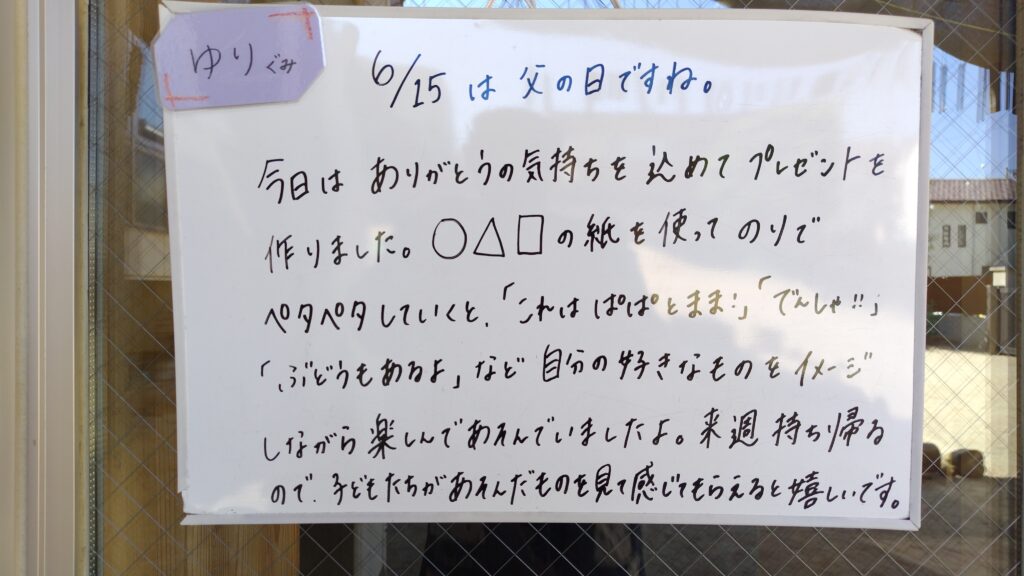 ゆりぐみ
6/15 は 父の日ですね。
今日は ありがとうの気持ちを 込めて プレゼントを
作りました。○△□の紙を使って のりで
ペタペタしていくと、「これは ぱぱとまま!」「でんしゃ!!」
「ぶどうもあるよ」など 自分の好きなものを イメージ
しながら楽しんであそんでいましたよ。来週 持ち帰る
ので、子どもたちがあそんだものを見て感じてもらえると嬉しいです。